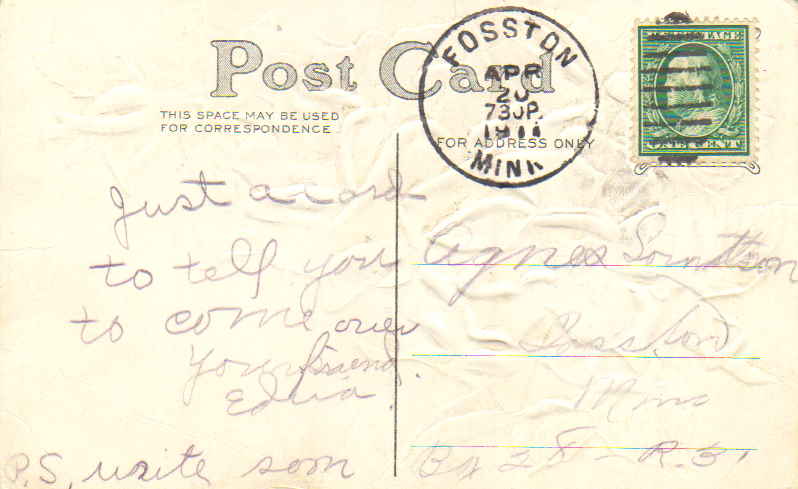 Post Card
THIS SPACE MAY BE USED
FOR CORRESPONDENCE
FOR ADDRESS ONLY
FOSSTON
APR
20
730P.
1911
MINN
Just a card
to tell you
to come over
Your friend
Edna.
P.S. write soon
Agnes
Fosston
Minn
Bx 28 - R.3.